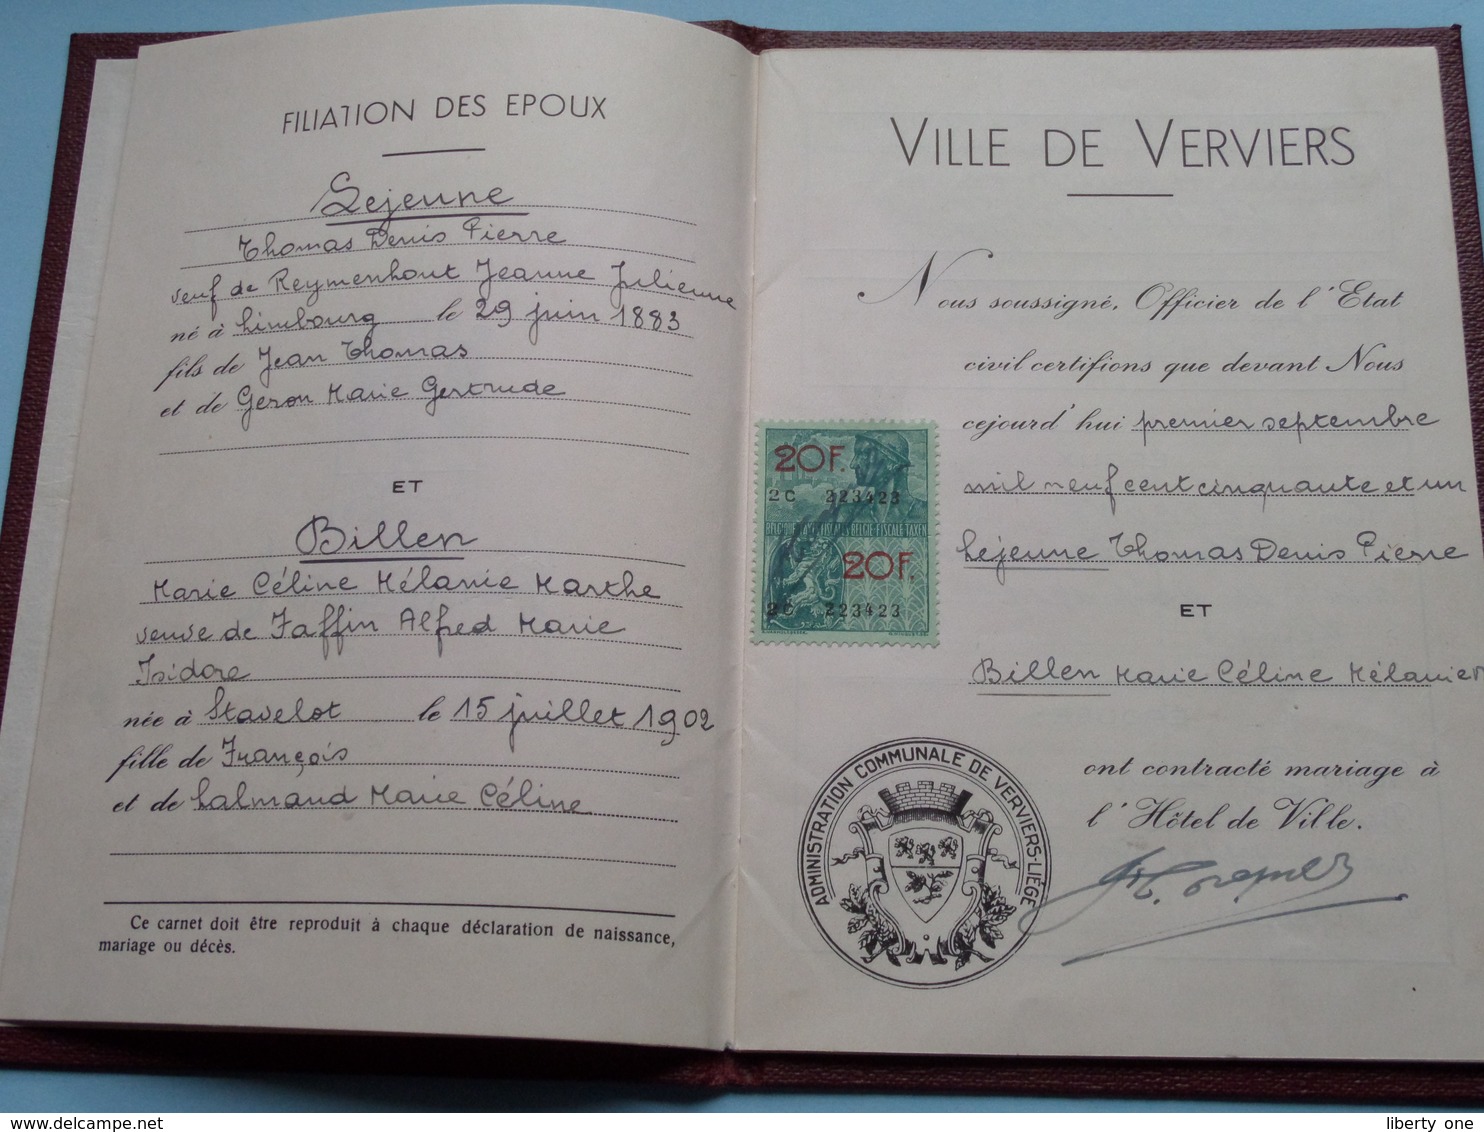 FILIATION DES EPOUX
Lejeune
Thomas Denis Pierre
veuf de Reymenhout Jeanne Julienne
né à Limbourg le 29 juin 1883
fils de Jean Thomas
et de Geron Marie Gertrude
ET
Billen
Marie Céline Mélanie Marthe
veuve de Jaffin Alfred Marie
Isidore
née à Stavelot le 15 juillet 1902
fille de François
et de Lalmand Marie Céline
Ce carnet doit être reproduit à chaque déclaration de naissance,
mariage ou décès.
VILLE DE VERVIERS
Nous soussigné, Officier de l'Etat
civil certifions que devant Nous
cejourd'hui premier septembre
mil neuf cent cinquante et un
Lejeune Thomas Denis Pierre
ET
Billen Marie Céline Mélanie
ont contracté mariage à
l'Hôtel de Ville.
20F.
2C 223423
BELGIE-FISCALE TAXEN
20F.
2C 223423
ADMINISTRATION COMMUNALE DE VERVIERS-LIÉGE
delcampe.net
liberty one